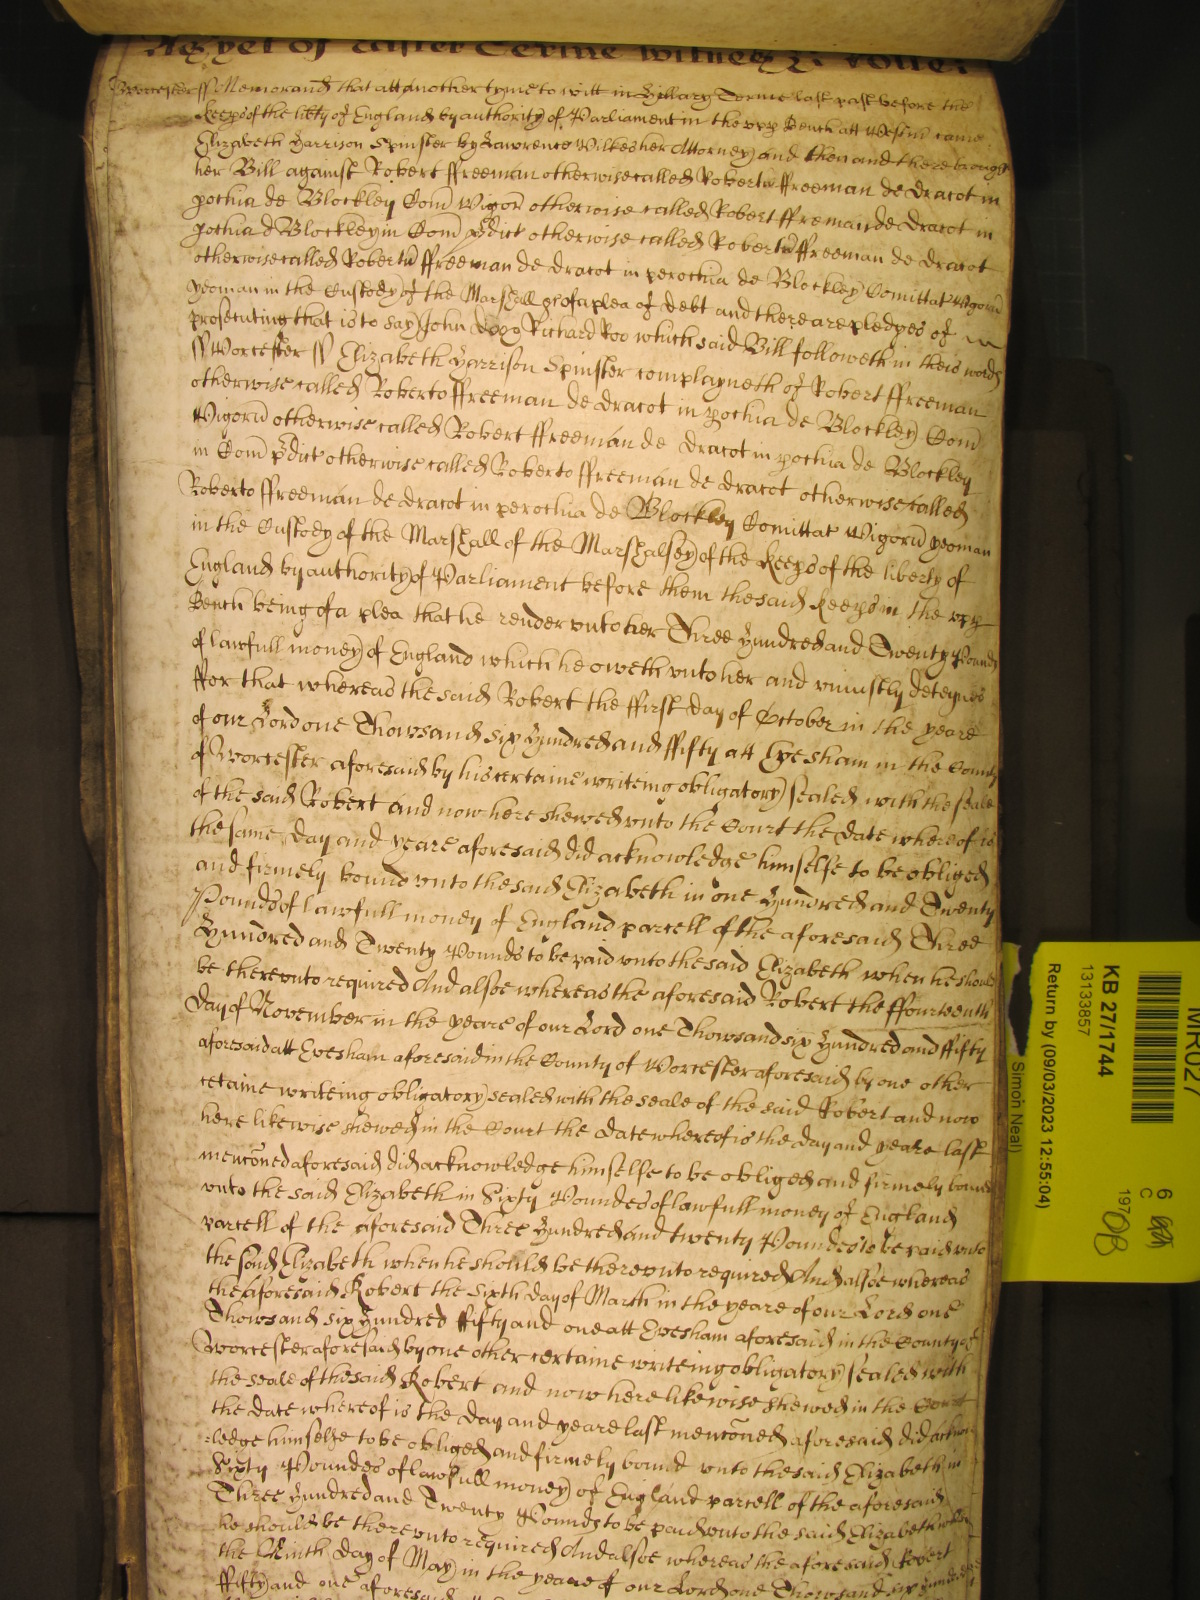 As yet of Easter Terme witnes H: Rolle:
Worcester ss Memorand that att another tyme to witt in Hillary Terme last past before the
Keeps of the libty of England by authority of Parliament in the vpp Bench att Westm came
Elizabeth Harrison Spinster by Lawrence Wilkes her Attorney and then and there brought
her Bill against Robert ffreeman otherwise called Robertu ffreeman de dracot in
pochia de Blockley Com Wigorn otherwise called Robert ffreman de dracot in
pochia d Blockley in Com pdict otherwise called Robertu ffreeman de dracot
otherwise called Robertu ffreeman de dracot in perochia de Blockley Comittat Wigorn
yeoman in the Custody of the Marshall &c of a plea of debt and there are pledges of
prosecuting that is to say John doo Richard Roo which said Bill followeth in theis words
ss Worcester ss Elizabeth Harrison Spinster complayneth of Robert ffreeman
otherwise called Roberto ffreeman de dracot in pochia de Blockley Com
Wigorn otherwise called Robert ffreeman de dracot in pochia de Blockley
in Com pdict otherwise called Roberto ffreeman de dracot otherwise called
Roberto ffreeman de dracot in perochia de Blockley Comittat Wigorn yeoman
in the Custody of the Marshall of the Marshalsey of the Keeps of the liberty of
England by authority of Parliament before them the said Keeps in the vpp
Bench being of a plea that he render vnto her Three Hundred and Twenty Pounds
of lawfull money of England which he oweth vnto her and vniustly deteynes
ffor that whereas the said Robert the ffirst day of October in the yeare
of our Lord one Thowsand six Hundred and ffifty att Evesham in the County
of Worcester aforesaid by his certaine writeing obligatory sealed with the seale
of the said Robert and now here shewed vnto the Court the date whereof is
the same day and yeare aforesaid did acknowledge himselfe to be obliged
and firmely bound vnto the said Elizabeth in one Hundred and Twenty
Pounds of lawfull money of England parcell of the aforesaid Three
Hundred and Twenty Pounds to be paid vnto the said Elizabeth when he should
be therevnto required And alsoe whereas the aforesaid Robert the ffourteenth
day of November in the yeare of our Lord one Thowsand six Hundred and ffifty
aforesaid att Evesham aforesaid in the County of Worcester aforesaid by one other
certaine writeing obligatory sealed with the seale of the said Robert and now
here likewise shewed in the Court the date whereof is the day and yeare last
menconed aforesaid did acknowledge himselfe to be obliged and firmely bound
vnto the said Elizabeth in Sixty Poundes of lawfull money of England
parcell of the aforesaid Three Hundred and twenty Poundes to be paid vnto
the said Elizabeth when he should be therevnto required And alsoe whereas
the aforesaid Robert the Sixth day of March in the yeare of our Lord one
Thowsand six Hundred ffifty and one att Evesham aforesaid in the County of
Worcester aforesaid by one other certaine writeing obligatory sealed with
the seale of the said Robert and now here likewise shewed in the Court
the date whereof is the day and yeare last menconed aforesaid did acknow
=ledge himselfe to be obliged and firmely bound vnto the said Elizabeth in
Sixty Poundes of lawfull money of England parcell of the aforesaid
Three Hundred and Twenty Pounds to be paid vnto the said Elizabeth when
he should be therevnto required And alsoe whereas the aforesaid Robert
the Ninth day of May in the yeare of our Lord one Thowsand six Hundred
ffifty and one aforesaid
MR027
KB 27/1744
13133857
Return by (09/03/2023 12:55:04)
Simon Neal)
6
C
197